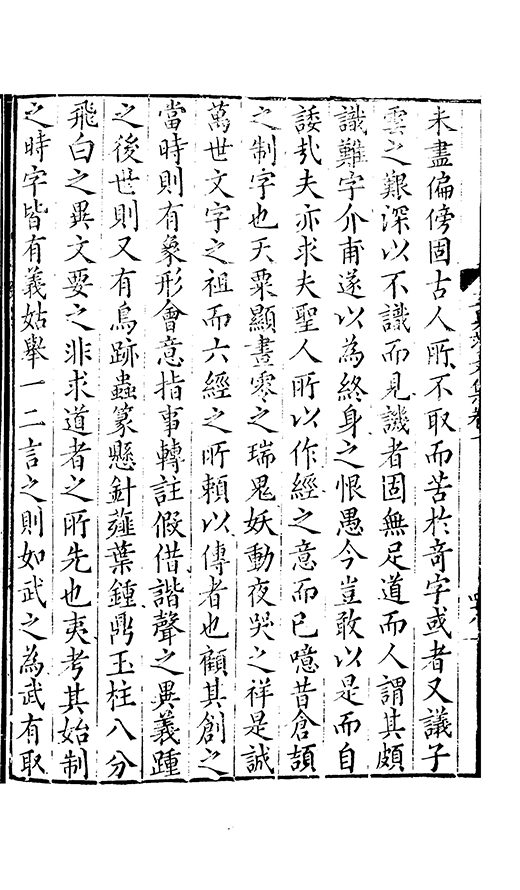 未盡偏傍固古人所不取而苦於竒字或者又議子
雲之艱深以不識而見譏者固無足道而人謂其頗
識難字介甫遂以為終身之恨愚今豈敢以是而自
諉㢤夫亦求夫聖人所以作經之意而已噫昔倉頡
之制字也天粟顯晝零之瑞鬼妖動夜哭之祥是誠
萬世文字之祖而六經之所頼以傳者也顧其創之
當時則有象形會意指事轉註假借諧聲之異義踵
之後世則又有鳥跡蟲篆懸針薤葉鍾鼎玉柱八分
飛白之異文要之非求道者之所先也夷考其始制
之時字皆有義姑舉一二言之則如武之為武有取